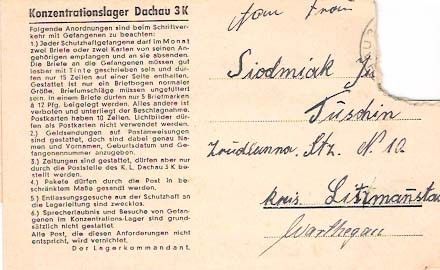 Konzentrationslager Dachau 3K
Folgende Anordnungen sind beim Schriftver-
kehr mit Gefangenen zu beachten:
1.) Jeder Schutzhaftgefangene darf im Monat
zwei Briefe oder zwei Karten von seinen An-
gehörigen empfangen und an sie absenden.
Die Briefe an die Gefangenen müssen gut
lesbar mit Tinte geschrieben sein und dür-
fen nur 15 Zeilen auf einer Seite enthalten.
Gestattet ist nur ein Briefbogen normaler
Größe. Briefumschläge müssen ungefüttert
sein. In einem Briefe dürfen nur 5 Briefmarken
à 12 Pfg. beigelegt werden. Alles andere ist
verboten und unterliegt der Beschlagnahme.
Postkarten haben 10 Zeilen. Lichtbilder dür-
fen als Postkarten nicht verwendet werden.
2.) Geldsendungen auf Postanweisungen
sind gestattet, doch sind dabei genau Na-
men und Vornamen, Geburtsdatum und Ge-
fangenennummer anzugeben.
3.) Zeitungen sind gestattet, dürfen aber nur
durch die Poststelle des K. L. Dachau 3 K be-
stellt werden.
4.) Pakete dürfen durch die Post in be-
schränktem Maße gesandt werden.
5.) Entlassungsgesuche aus der Schutzhaft an
die Lagerleitung sind zwecklos.
6.) Sprecherlaubnis und Besuche von Gefan-
genen im Konzentrations-Lager sind grund-
sätzlich nicht gestattet.
Alle Post, die diesen Anforderungen nicht
entspricht, wird vernichtet.
Der Lagerkommandant.
Frau
Siodmiak
Tuschin
Stz. N 10
kreis Litzmannsta
Warthegau